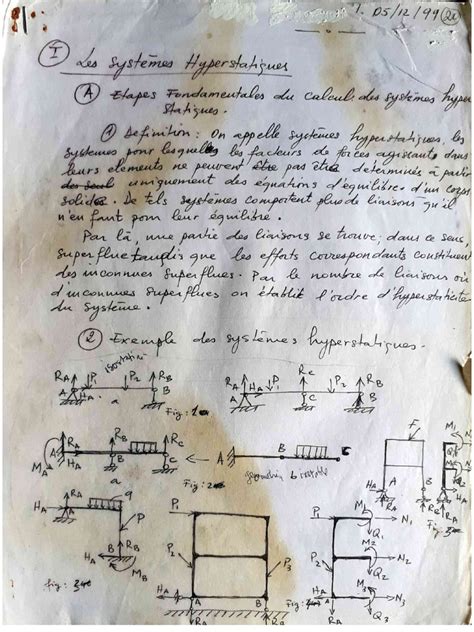 05/12/99
I Les systèmes Hyperstatiques
A Etapes Fondamentales du calcul des systèmes hyper
statiques.
1 Definition : On appelle systèmes hyperstatiques, les
systèmes pour lesquelles les facteurs de forces agissants dans
leurs elements ne peuvent être pas être determinés à partir
des seul uniquement des équations d'équilibre d'un corps
solide. De tels systèmes comportent plus de liaisons qu'il
n'en faut pour leur équilibre.
Par là, une partie des liaisons se trouve, dans ce sens
superflue tandis que les efforts correspondants constituent
des inconnues superflues. Par le nombre de liaisons ou
d'inconnues superflues on établit l'ordre d'hyperstaticité
du système.
2 Exemple des systèmes hyperstatiques.
RA P1 P2 RB
A HA B
a
RA P1 RC P2 RB
A HA C B
RA RB RC
A HA B C
MA
a
A B
b
Fig: 2
F
A B
HA
RA q
P
HA B
RB MB
P1 P2 P3
HA A B
RA
P1 M1 N1 Q1
P2 M2 N2 Q2
HA A M3 N3 Q3
RA